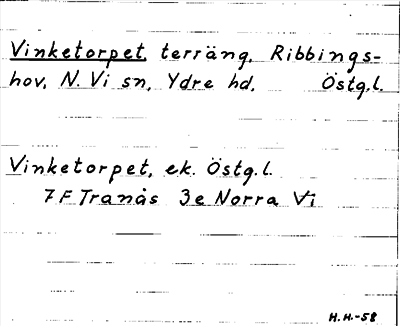 Vinketorpet, terräng, Ribbings-
hov, N. Vi sn, Ydre hd, Östg.l.
Vinketorpet, ek. Östg.l.
7 F Tranås 3e Norra Vi
H.H.-58